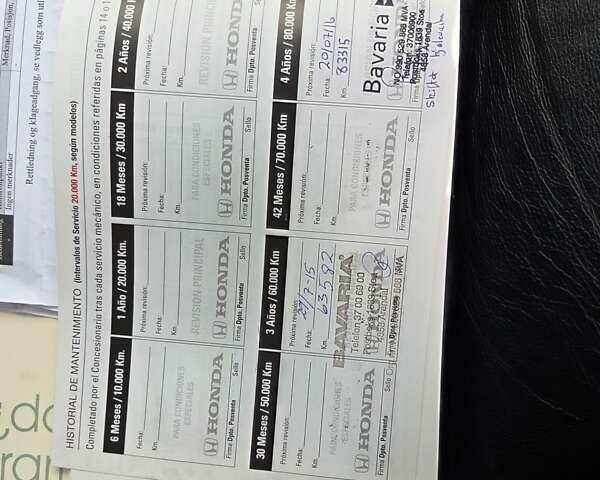 HISTORIAL DE MANTENIMIENTO (Intervalos de Servicio 20.000 Km, según modelos)
Completado por el Concesionario tras cada servicio mecánico, en condiciones referidas en páginas 14 o 1
6 Meses / 10.000 Km.
Próxima revisión:
Fecha:
Km.
PARA CONDICIONES
ESPECIALES
HONDA
Firma Dpto. Posventa
Sello
1 Año / 20.000 Km.
Próxima revisión:
Fecha:
Km.
REVISION PRINCIPAL
HONDA
Firma Dpto. Posventa
Sello
18 Meses / 30.000 Km
Próxima revisión:
Fecha:
Km.
PARA CONDICIONES
ESPECIALES
HONDA
Firma Dpto. Posventa
Sello
2 Años / 40.000 K
Próxima revisión:
Fecha:
Km.
REVISION PRINCIPAL
HONDA
Firma Dpto. Posventa
30 Meses / 50.000 Km
Próxima revisión:
Fecha:
Km.
PARA CONDICIONES
ESPECIALES
HONDA
Firma Dpto. Posventa
Sello
3 Años / 60.000 Km
Próxima revisión:
Fecha:
29/7-15
Km.
63582
BAVARIA
Telefon 37 00 69 00
4859 Arendal
MVA
Firma Dpto. Posventa
42 Meses / 70.000 Km
Próxima revisión:
Fecha:
Km.
PARA CONDICIONES
HONDA
Firma Dpto. Posventa
Sello
4 Años / 80.000 K
Próxima revisión:
Fecha:
20/07/16
Km.
83315
Bavaria
MVA
4859 Arendal
Firma Dpto. Posventa
Merknad, Posisjon,
Ingen merknader
Rettledning og klageadgang, se vedlegg som ut